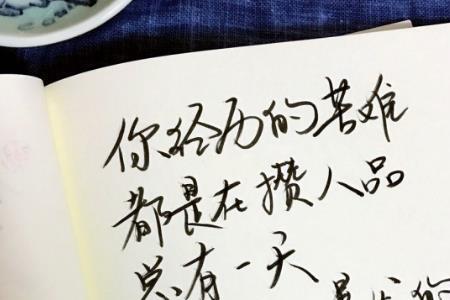 你经历的苦难
都是在攒人品
总有一天